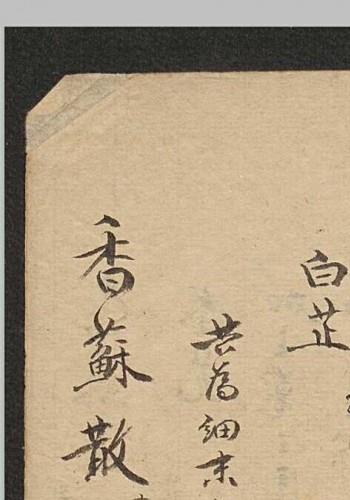 白芷
共為細末
香蘇散